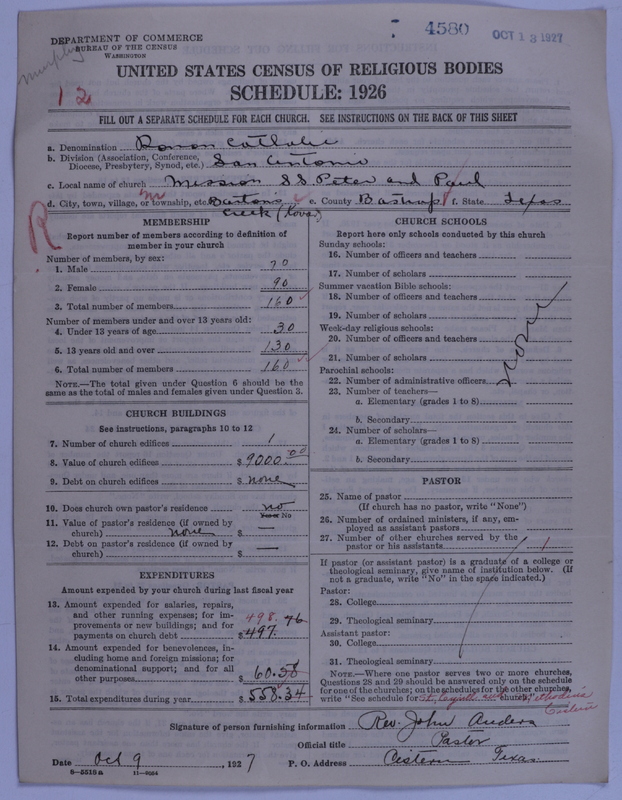 4580 OCT 13 1927
DEPARTMENT OF COMMERCE
BUREAU OF THE CENSUS
WASHINGTON
Murphy
1 2
UNITED STATES CENSUS OF RELIGIOUS BODIES
SCHEDULE: 1926
FILL OUT A SEPARATE SCHEDULE FOR EACH CHURCH. SEE INSTRUCTIONS ON THE BACK OF THIS SHEET
a. Denomination Roman Catholic
b. Division (Association, Conference, Diocese, Presbytery, Synod, etc.) San Antonio
c. Local name of church Mission S.S. Peter and Paul
d. City, town, village, or township, etc. Bartons Creek e. County Bastrop f. State Texas
R
MEMBERSHIP
Report number of members according to definition of
member in your church
Number of members, by sex:
1. Male 70
2. Female 90
3. Total number of members 160
Number of members under and over 13 years old:
4. Under 13 years of age 30
5. 13 years old and over 130
6. Total number of members 160
NOTE.—The total given under Question 6 should be the
same as the total of males and females given under Question 3.
CHURCH BUILDINGS
See instructions, paragraphs 10 to 12
7. Number of church edifices 1
8. Value of church edifices $ 9000.00
9. Debt on church edifices $ none
10. Does church own pastor's residence no
Yes or No
11. Value of pastor's residence (if owned by
church) none $ —
12. Debt on pastor's residence (if owned by
church) $ —
EXPENDITURES
Amount expended by your church during last fiscal year
13. Amount expended for salaries, repairs,
and other running expenses; for im-
provements or new buildings; and for
payments on church debt $ 497. 498. 76
14. Amount expended for benevolences, in-
cluding home and foreign missions; for
denominational support; and for all
other purposes $ 60.38
15. Total expenditures during year $ 558.34
CHURCH SCHOOLS
Report here only schools conducted by this church
Sunday schools:
16. Number of officers and teachers
17. Number of scholars
Summer vacation Bible schools:
18. Number of officers and teachers
19. Number of scholars
Week-day religious schools:
20. Number of officers and teachers
21. Number of scholars
Parochial schools:
22. Number of administrative officers
23. Number of teachers—
a. Elementary (grades 1 to 8)
b. Secondary
24. Number of scholars—
a. Elementary (grades 1 to 8)
b. Secondary
None
PASTOR
25. Name of pastor
(If church has no pastor, write "None")
26. Number of ordained ministers, if any, em-
ployed as assistant pastors
27. Number of other churches served by the
pastor or his assistants 1
If pastor (or assistant pastor) is a graduate of a college or
theological seminary, give name of institution below. (If
not a graduate, write "No" in the space indicated.)
Pastor:
28. College
29. Theological seminary
Assistant pastor:
30. College
31. Theological seminary
NOTE.—Where one pastor serves two or more churches,
Questions 28 and 29 should be answered only on the schedule
for one of the churches; on the schedules for the other churches,
write "See schedule for St. Cyrill and Methodius church." Cistern
Signature of person furnishing information Rev. John Anders
Official title Pastor
Date Oct 9, 1927 P. O. Address Cistern Texas
8—5518a 11—9084